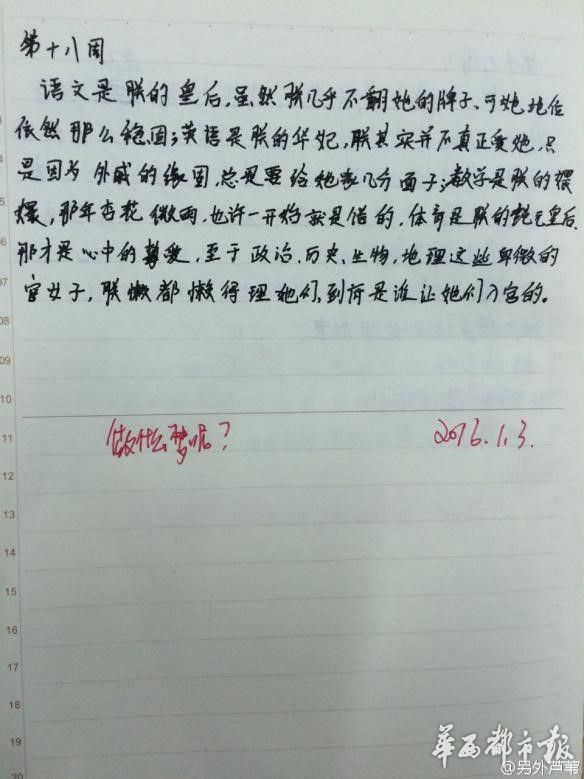 第十八周
语文是朕的皇后,虽然朕几乎不翻她的牌子、可她地位
依然那么稳固;英语是朕的华妃,朕其实并不真正爱她,只
是因为外戚的缘固,总是要给她家几分面子;数学是朕的嬛
嬛,那年杏花微雨,也许一开始就是错的,体育是朕的纯元皇后、
那才是心中的挚爱,至于政治、历史、生物,地理这些卑微的
官女子,朕懒都懒得理她们,到底是谁让她们入宫的。
做什么梦呢?
2016.1.3.
08
09
10
11
12
13
14
15
16
17
18
19
20
华西都市报
@另外芦苇